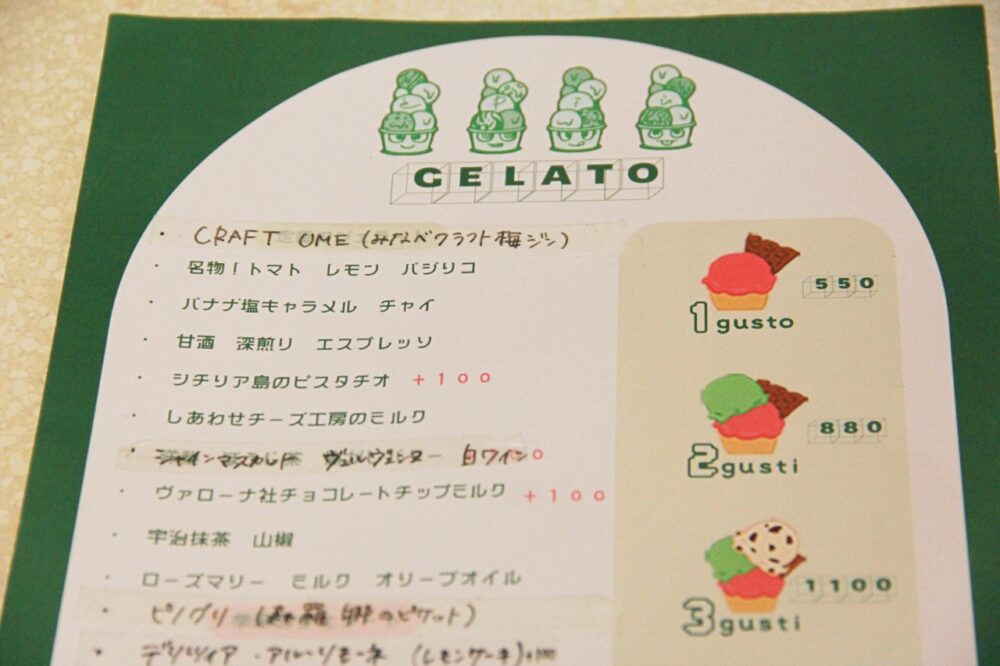 GELATO
・ CRAFT UME (みなべクラフト梅ジン)
・ 名物！トマト レモン バジリコ
・ バナナ塩キャラメル チャイ
・ 甘酒 深煎り エスプレッソ
・ シチリア島のピスタチオ +100
・ しあわせチーズ工房のミルク
・ シャインマスカット ヴェルヴェンヌ 白ワイン
・ ヴァローナ社チョコレートチップミルク +100
・ 宇治抹茶 山椒
・ ローズマリー ミルク オリーブオイル
・ ピノグリ (のピケット)
・ デリツィア・アル・リモーネ (レモンケーキ)
550
1 gusto
880
2 gusti
1100
3 gusti